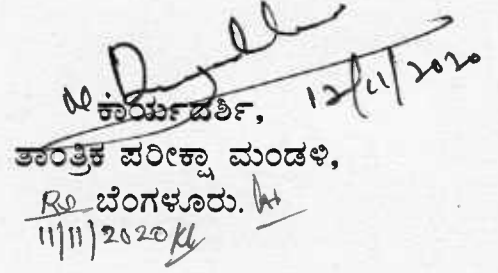 12/11/2020
ಕಾರ್ಯದರ್ಶಿ,
ತಾಂತ್ರಿಕ ಪರೀಕ್ಷಾ ಮಂಡಳಿ,
ಬೆಂಗಳೂರು.
11/11/2020